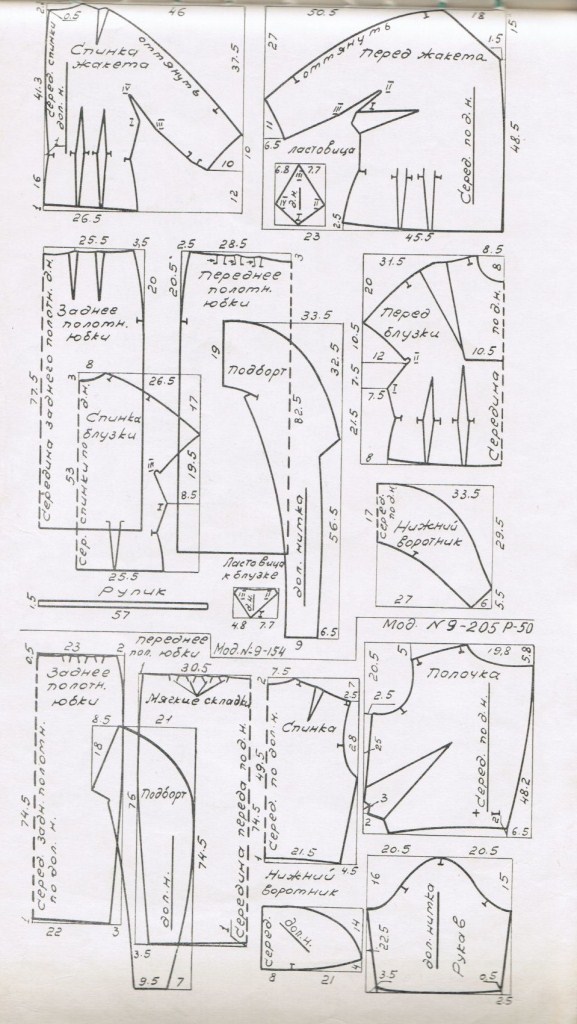 2
0.5
46
Спинка
жакета
оттянуть
37.5
41.3
Серед. спинки
дол. н.
IV
III
I
10
10
16
12
1
26.5
50.5
18
15
27
1.5
Перед жакета
оттянуть
II
III
I
11
6.5
Ластовица
6.8
7.7
III
IV
II
I
д.н.
Серед. по д.н.
48.5
2.5
23
45.5
25.5
3.5
20
Заднее
полотн.
юбки
Середина заднего полотн. д.н.
77.5
2.5
28.5
3
20.5
Переднее
полотн.
юбки
82.5
33.5
19
Подборт
32.5
56.5
дол. нитка
9
6.5
8
3
26.5
17
Спинка
блузки
сер. спинки по д.н.
53
III
19.5
8.5
I
25.5
31.5
8.5
8
20
Перед
блузки
10.5
10.5
12
II
7.5
7.5
I
21.5
8
Середина по д.н.
33.5
17
серед.
под.н.
Нижний
воротник
29.5
27
6
5.5
Рулик
1.5
57
Ластовица
к блузке
III
II
д.н.
I
4.8
7.7
Мод. №9-154
Мод. №9-205 Р-50
0.5
23
2
Заднее
полотн.
юбки
74.5
серед. задн. полотн.
по дол. н.
22
3
переднее
пол. юбки
1
30.5
Мягкие складки
76
74.5
Середина переда по д.н.
1
3.5
8.5
21
18
Подборт
дол. н.
74.5
9.5
7
7.5
7
2
2.5
Спинка
28
49.5
серед. по дол.н.
1
21.5
4.5
5
19.8
5.8
20.5
Полочка
2.5
25
3
2
Серед. по д.н.
48.2
2
6.5
Нижний
воротник
серед.
дол. н.
14
4
8
21
20.5
20.5
16
15
дол. нитка
Рукав
22.5
3.5
0.5
2.5